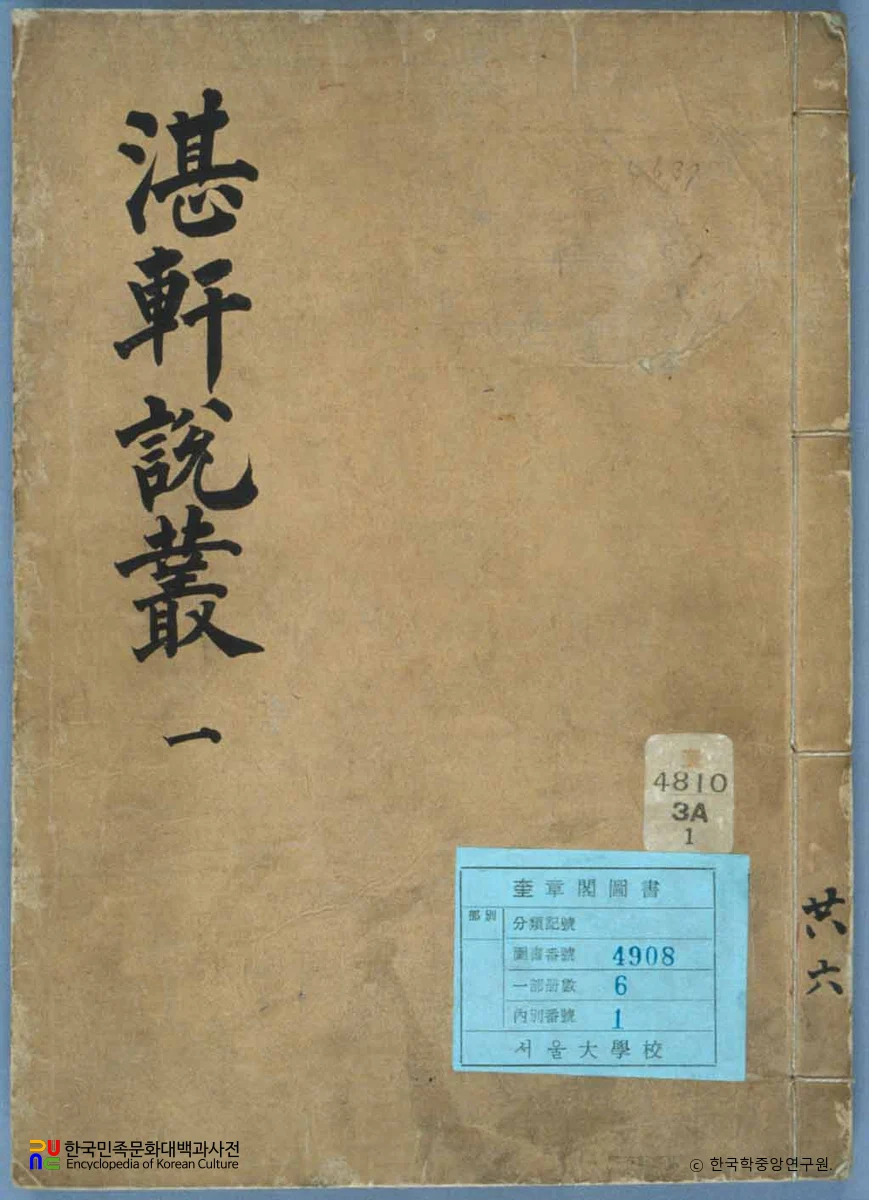 湛軒說叢
一
4810
3A
1
奎章閣圖書
部別
分類記號
圖書番號 4908
一部冊數 6
內別番號 1
서울大學校
共六
한국민족문화대백과사전
Encyclopedia of Korean Culture
© 한국학중앙연구원.